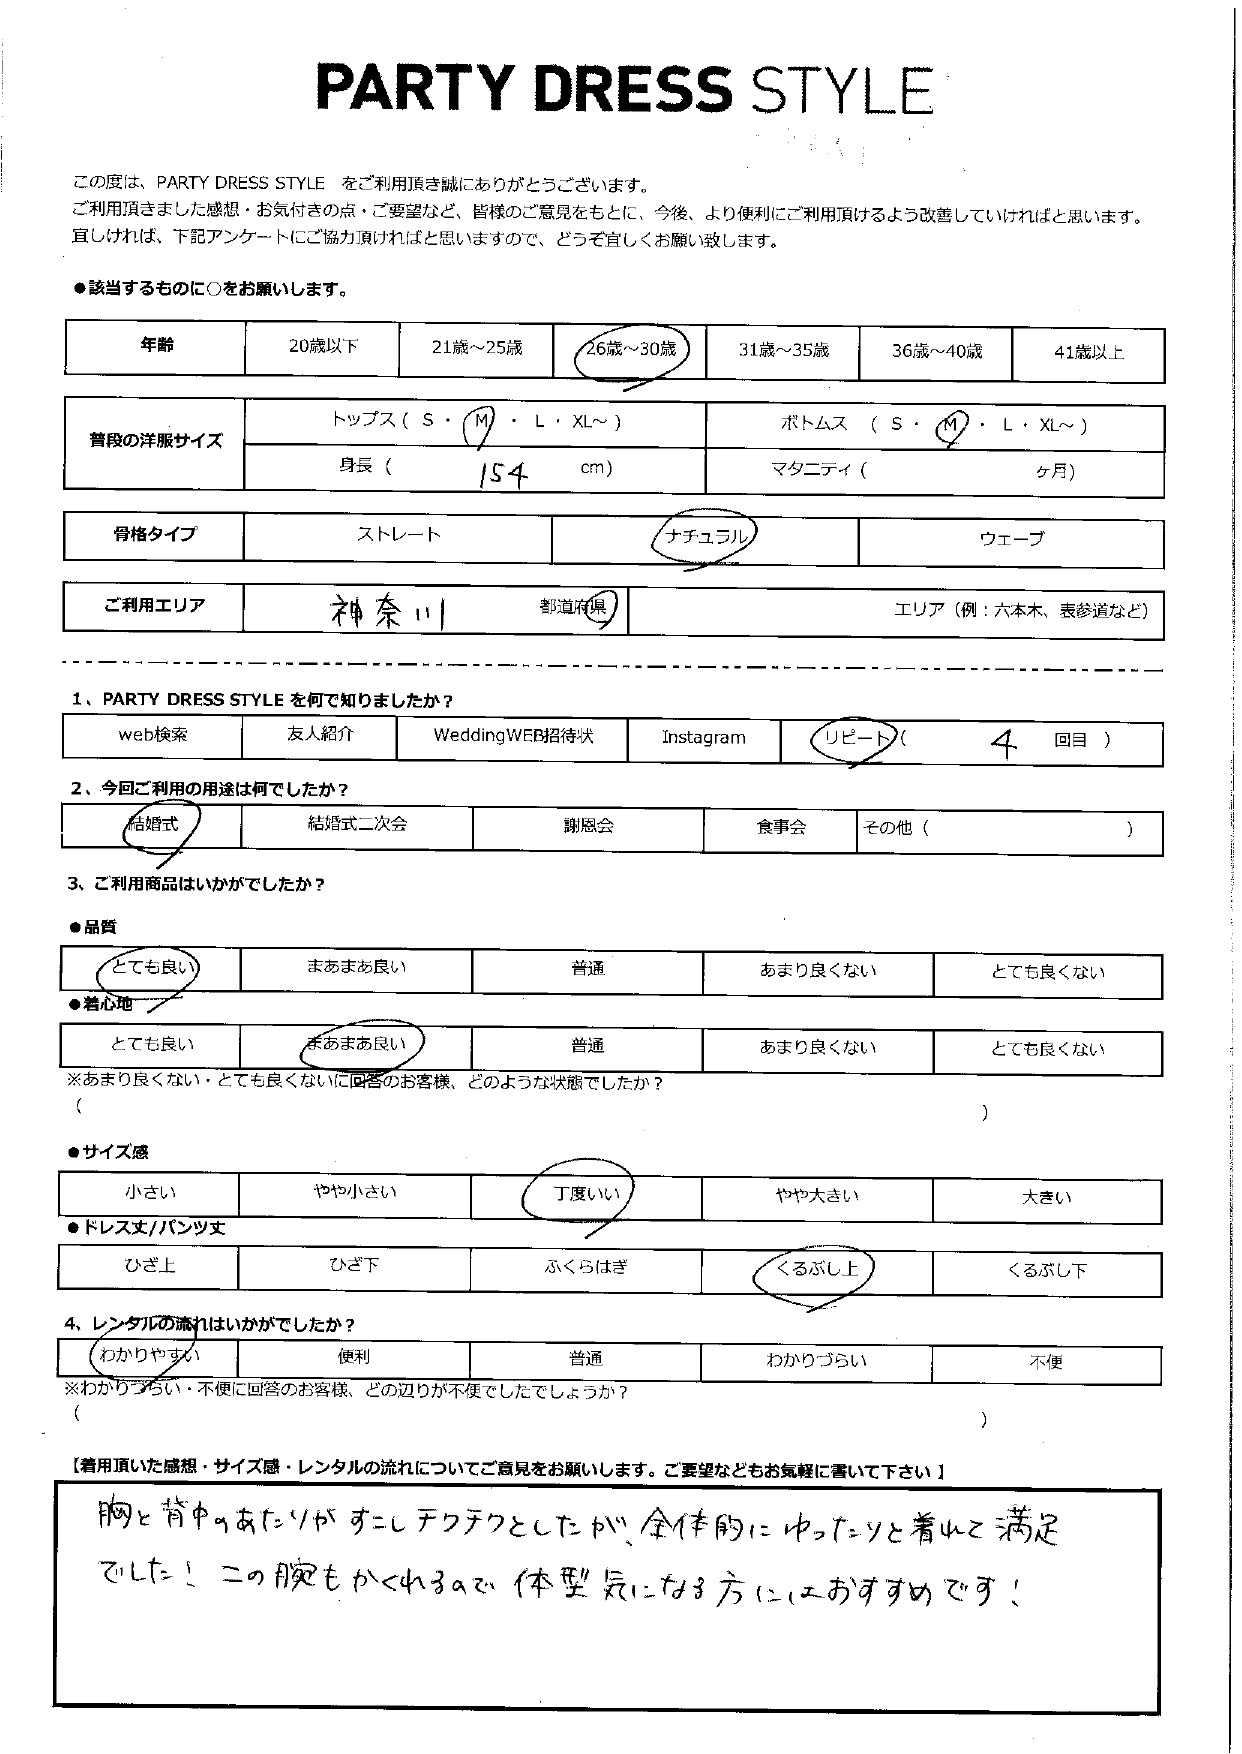 PARTY DRESS STYLE
この度は、PARTY DRESS STYLE　をご利用頂き誠にありがとうございます。
ご利用頂きました感想・お気付きの点・ご要望など、皆様のご意見をもとに、今後、より便利にご利用頂けるよう改善していければと思います。
宜しければ、下記アンケートにご協力頂ければと思いますので、どうぞ宜しくお願い致します。
●該当するものに○をお願いします。
年齢 20歳以下 21歳～25歳 26歳～30歳 31歳～35歳 36歳～40歳 41歳以上
普段の洋服サイズ トップス ( S ・ M ・ L ・ XL～ ) ボトムス ( S ・ M ・ L ・ XL～ )
身長 ( 154 cm) マタニティ ( ヶ月)
骨格タイプ ストレート ナチュラル ウェーブ
ご利用エリア 神奈川 都道府県 エリア（例：六本木、表参道など）
1、PARTY DRESS STYLE を何で知りましたか？
web検索 友人紹介 WeddingWEB招待状 Instagram リピート ( 4 回目 )
2、今回ご利用の用途は何でしたか？
結婚式 結婚式二次会 謝恩会 食事会 その他 ( )
3、ご利用商品はいかがでしたか？
●品質
とても良い まあまあ良い 普通 あまり良くない とても良くない
●着心地
とても良い まあまあ良い 普通 あまり良くない とても良くない
※あまり良くない・とても良くないに回答のお客様、どのような状態でしたか？
( )
●サイズ感
小さい やや小さい 丁度いい やや大きい 大きい
●ドレス丈/パンツ丈
ひざ上 ひざ下 ふくらはぎ くるぶし上 くるぶし下
4、レンタルの流れはいかがでしたか？
わかりやすい 便利 普通 わかりづらい 不便
※わかりづらい・不便に回答のお客様、どの辺りが不便でしたでしょうか？
( )
【着用頂いた感想・サイズ感・レンタルの流れについてご意見をお願いします。ご要望などもお気軽に書いて下さい】
胸と背中のあたりがすこしチクチクとしたが、全体的にゆったりと着れて満足
でした！この腕もかくれるので体型気になる方にはおすすめです！